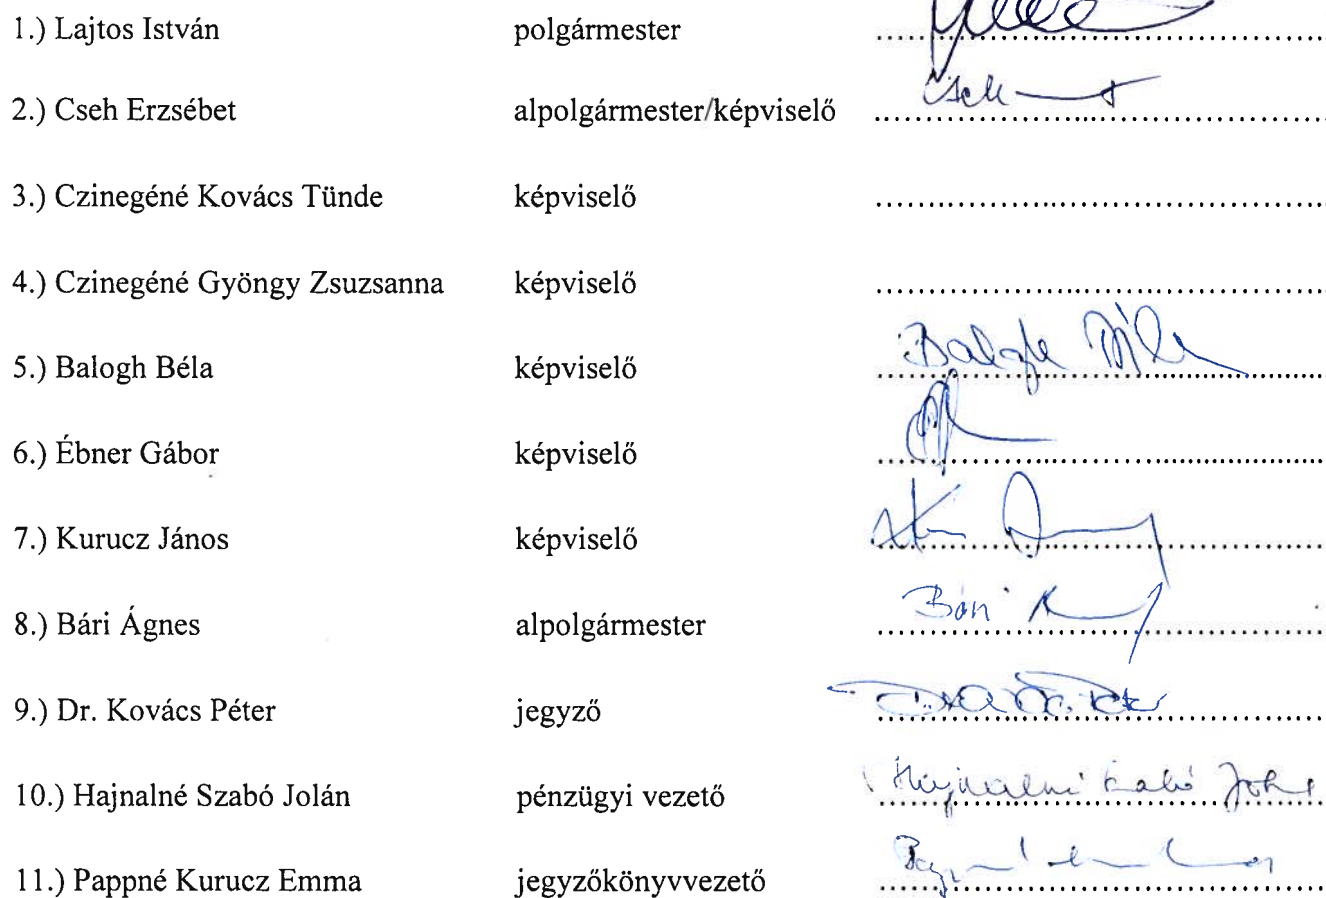 1.) Lajtos István polgármester
2.) Cseh Erzsébet alpolgármester/képviselő Cseh
3.) Czinegéné Kovács Tünde képviselő
4.) Czinegéné Gyöngy Zsuzsanna képviselő
5.) Balogh Béla képviselő Balogh Béla
6.) Ébner Gábor képviselő
7.) Kurucz János képviselő
8.) Bári Ágnes alpolgármester Bári
9.) Dr. Kovács Péter jegyző
10.) Hajnalné Szabó Jolán pénzügyi vezető Hajnalné Szabó Jolán
11.) Pappné Kurucz Emma jegyzőkönyvvezető